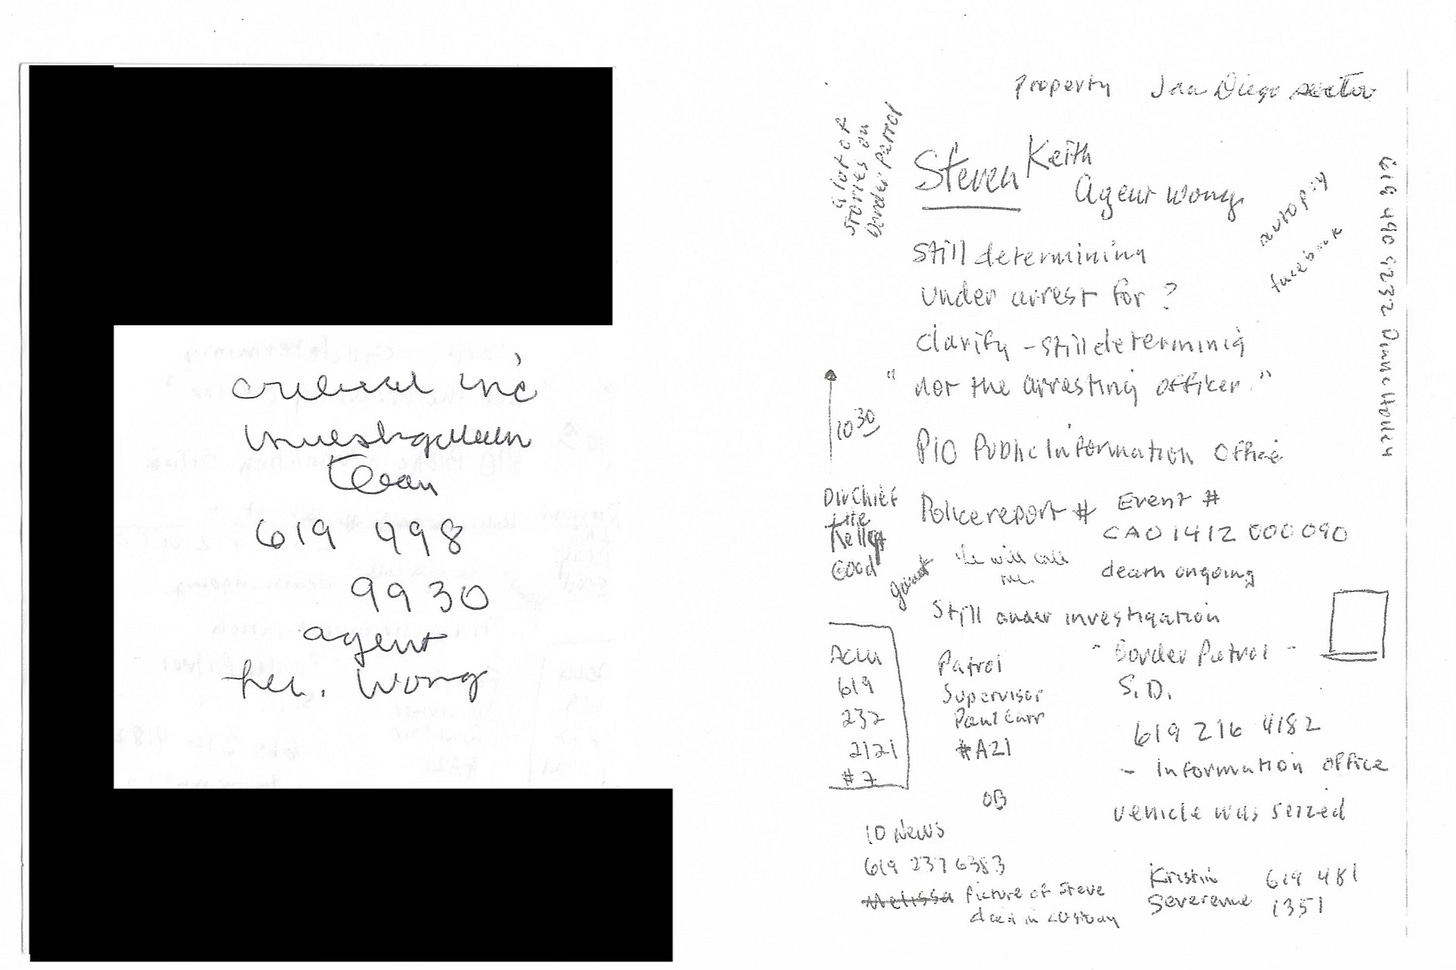 critical inc
investigation
team
619 998
9930
agent
Wong
Property San Diego sector
a lot of
stories on
Border Patrol
Steven Keith
Agent Wong
autopsy
facebook
619 490 9232
Still determining
under arrest for ?
clarify - still determining
"not the arresting officer."
10 30
PIO Public Information Office
Div Chief
the
Kelley
Good
Police report # Event #
CA01412 000090
he will call
me
death ongoing
Still under investigation
ACLU
619
232
2121
#7
Patrol
Supervisor
Paul Carr
#A21
"Border Patrol"
S.D.
619 216 4182
- Information office
vehicle was seized
OB
10 News
619 237 6383
Melissa Picture of Steve
died in custody
Kristin 619 481
1351